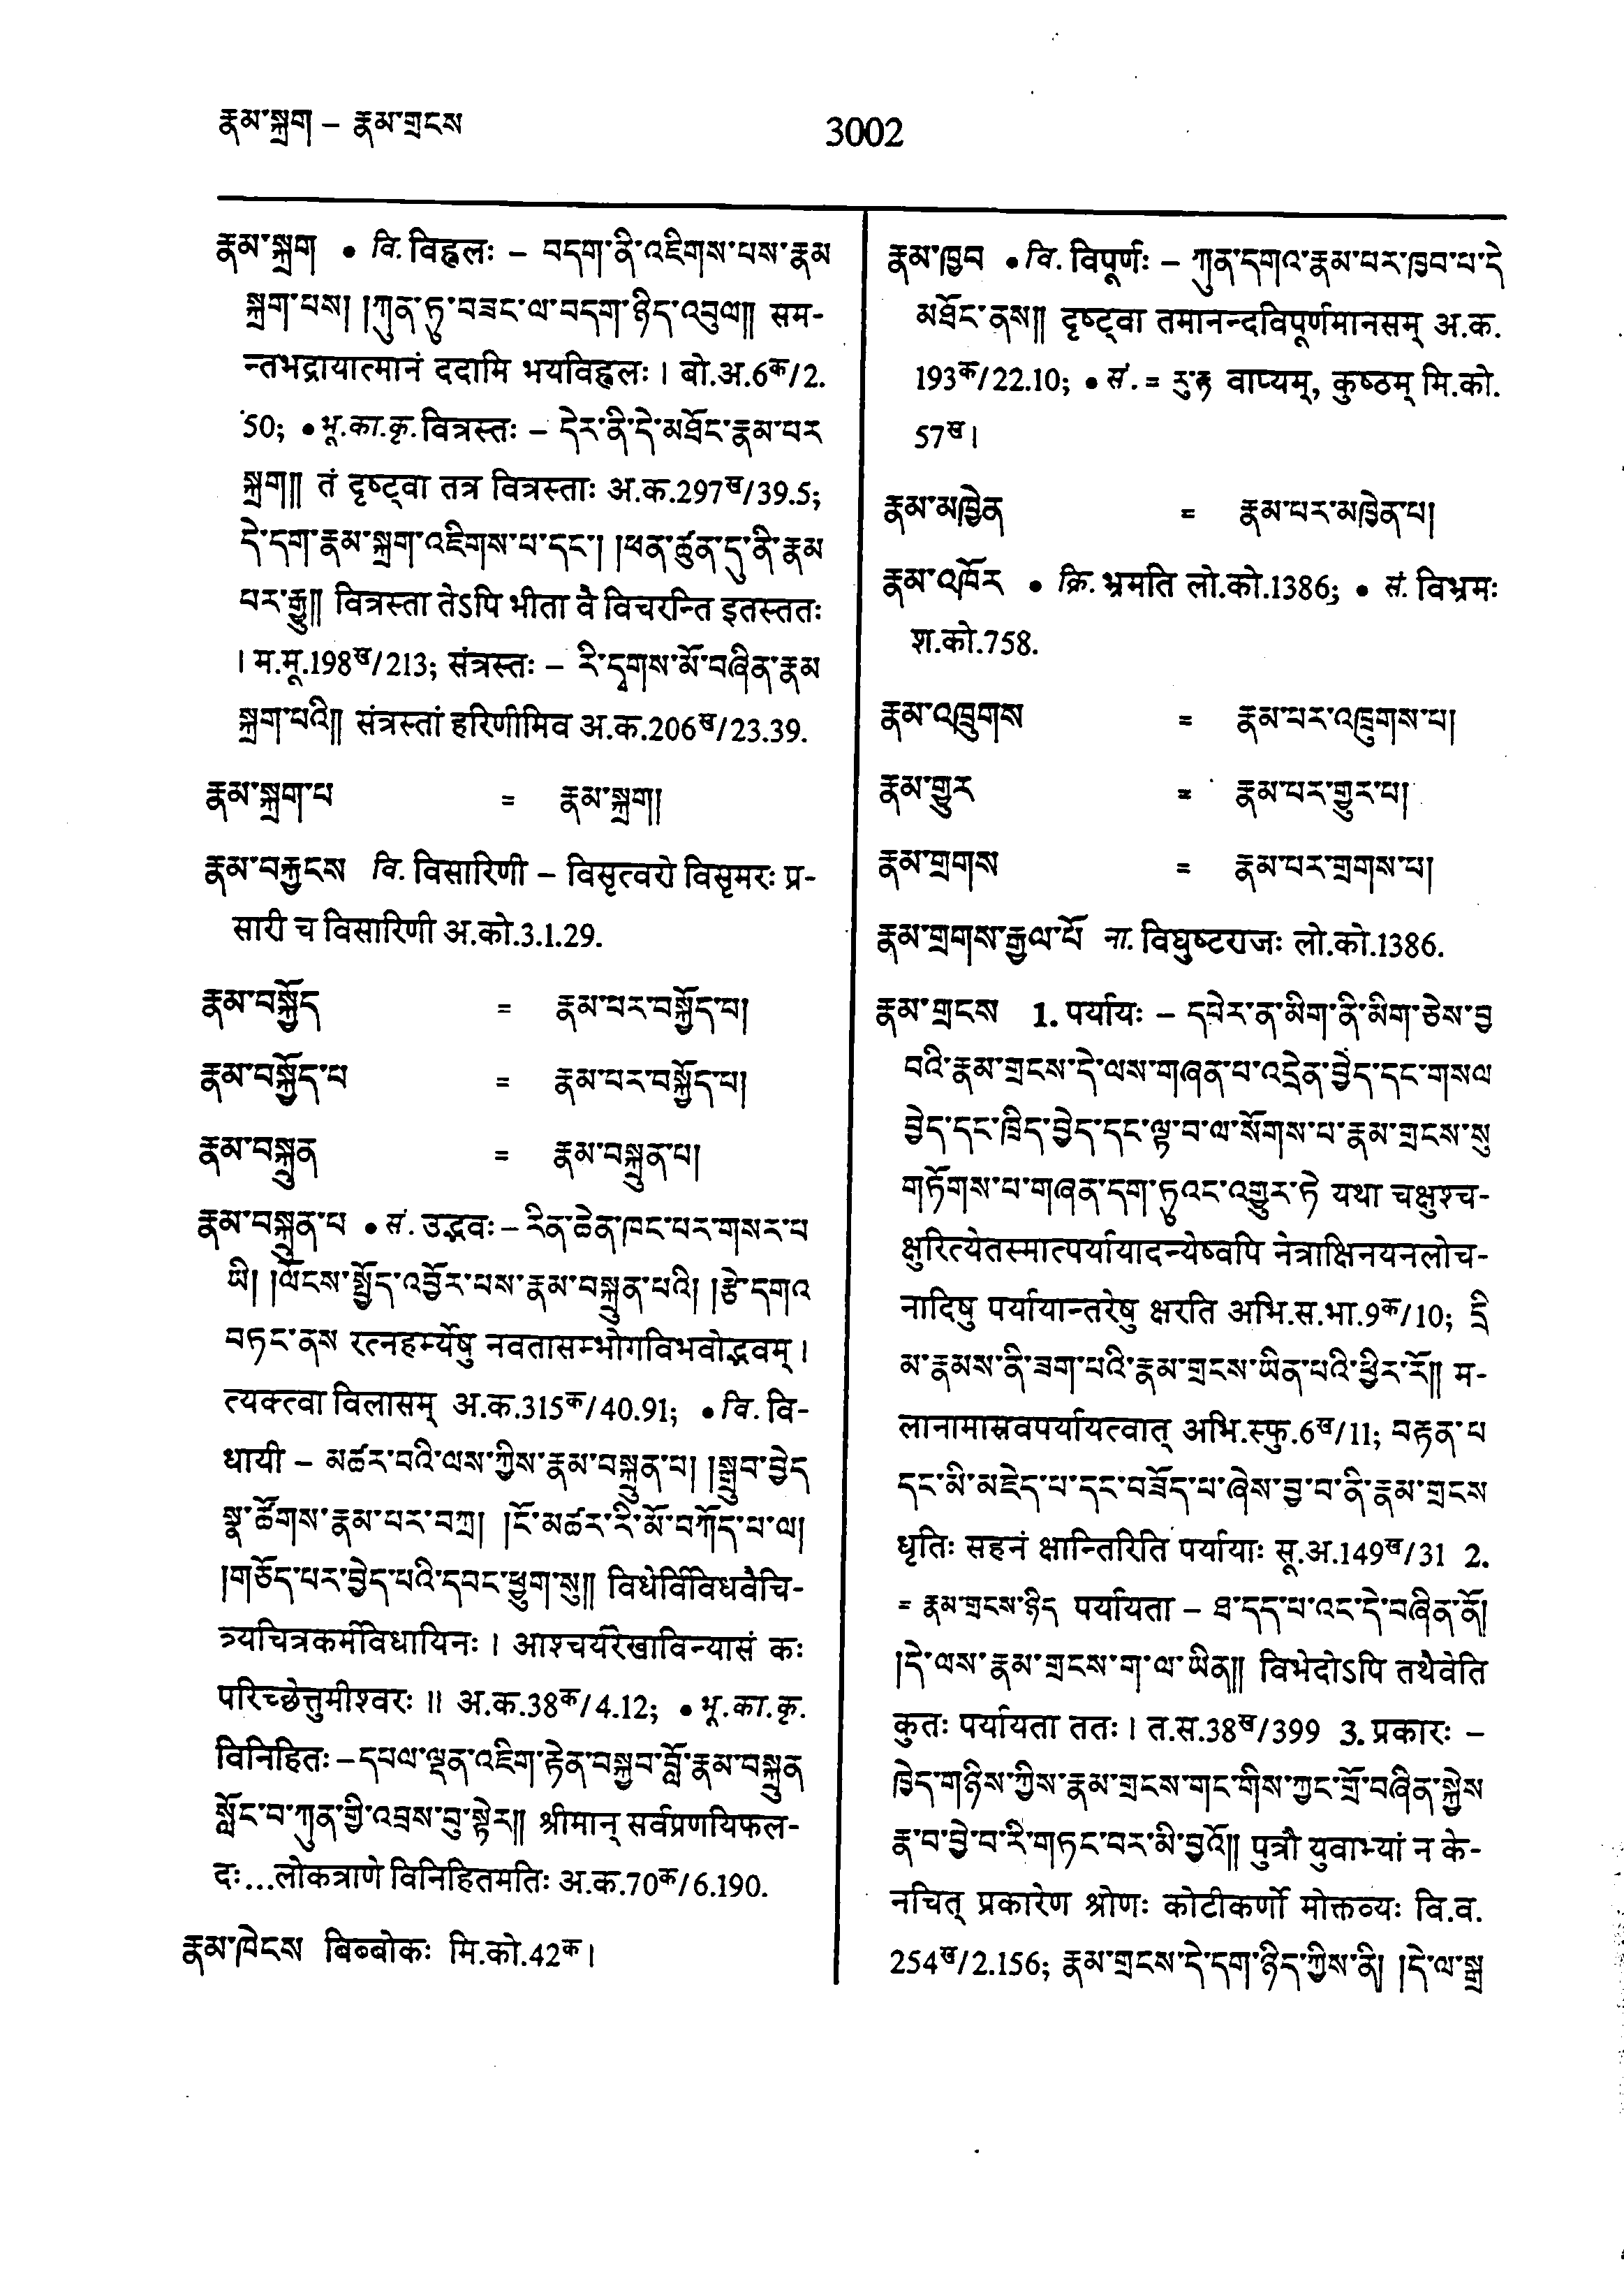 རྣམ་སྐྲག – རྣམ་གྲངས
3002
རྣམ་སྐྲག • वि. विह्वलः – བདག་ནི་འཇིགས་པས་རྣམ
སྐྲག་པས། །ཀུན་ཏུ་བཟང་ལ་བདག་ཉིད་འབུལ།། सम-
न्तभद्रायात्मानं ददामि भयविह्वलः । बो.अ.6क/2.
50; • भू.का.कृ. वित्रस्तः – དེར་ནི་དེ་མཐོང་རྣམ་པར
སྐྲག།། तं दृष्ट्वा तत्र वित्रस्ताः अ.क.297ख/39.5;
དེ་དག་རྣམ་སྐྲག་འཇིགས་པ་དང་། །ཕན་ཚུན་དུ་ནི་རྣམ
པར་རྒྱུ།། वित्रस्ता तेऽपि भीता वै विचरन्ति इतस्ततः
। म.मू.198ख/213; संत्रस्तः – རི་དྭགས་མོ་བཞིན་རྣམ
སྐྲག་པའི།། संत्रस्तां हरिणीमिव अ.क.206ख/23.39.
རྣམ་སྐྲག་པ = རྣམ་སྐྲག།
རྣམ་བརྐྱངས वि. विसारिणी – विसृत्वरो विसृमरः प्र-
सारी च विसारिणी अ.को.3.1.29.
རྣམ་བསྐྱོད = རྣམ་པར་བསྐྱོད་པ།
རྣམ་བསྐྱོད་པ = རྣམ་པར་བསྐྱོད་པ།
རྣམ་བསྐྲུན = རྣམ་བསྐྲུན་པ།
རྣམ་བསྐྲུན་པ • सं. उद्भवः – རིན་ཆེན་ཁང་པར་གསར་པ
ཡི། །ལོངས་སྤྱོད་འབྱོར་པས་རྣམ་བསྐྲུན་པའི། །རྩེ་དགའ
བཏང་ནས रत्नहर्म्येषु नवतासम्भोगविभवोद्भवम् ।
त्यक्त्वा विलासम् अ.क.315क/40.91; • वि. वि-
धायी – མཚར་བའི་ལས་ཀྱིས་རྣམ་བསྐྲུན་པ། །སྒྲུབ་བྱེད
སྣ་ཚོགས་རྣམ་པར་བཀྲ། །ངོ་མཚར་རི་མོ་བཀོད་པ་ལ།
།གཅོད་པར་བྱེད་པའི་དབང་ཕྱུག་སུ།། विधेर्विविधवैचि-
त्र्यचित्रकर्मविधायिनः । आश्चर्यरेखाविन्यासं कः
परिच्छेत्तुमीश्वरः ॥ अ.क.38क/4.12; • भू.का.कृ.
विनिहितः – དཔལ་ལྡན་འཇིག་རྟེན་བསྐྱབ་བློ་རྣམ་བསྐྲུན
སློང་བ་ཀུན་གྱི་འབྲས་བུ་སྟེར།། श्रीमान् सर्वप्रणयिफल-
दः...लोकत्राणे विनिहितमतिः अ.क.70क/6.190.
རྣམ་ཁེངས बिब्बोकः मि.को.42क ।
རྣམ་ཁྱབ • वि. विपूर्णः – ཀུན་དགའ་རྣམ་པར་ཁྱབ་པ་དེ
མཐོང་ནས།། दृष्ट्वा तमानन्दविपूर्णमानसम् अ.क.
193क/22.10; • सं. = རུ་རྟ वाप्यम्, कुष्ठम् मि.को.
57ख ।
རྣམ་མཁྱེན = རྣམ་པར་མཁྱེན་པ།
རྣམ་འཁོར • क्रि. भ्रमति लो.को.1386; • सं. विभ्रमः
श.को.758.
རྣམ་འཁྲུགས = རྣམ་པར་འཁྲུགས་པ།
རྣམ་གྱུར = རྣམ་པར་གྱུར་པ།
རྣམ་གྲགས = རྣམ་པར་གྲགས་པ།
རྣམ་གྲགས་རྒྱལ་པོ ना. विघुष्टराजः लो.को.1386.
རྣམ་གྲངས 1. पर्यायः – དཔེར་ན་མིག་ནི་མིག་ཅེས་བྱ
བའི་རྣམ་གྲངས་དེ་ལས་གཞན་པ་འདྲེན་བྱེད་དང་གསལ
བྱེད་དང་ཁྲིད་བྱེད་དང་ལྟ་བ་ལ་སོགས་པ་རྣམ་གྲངས་སུ
གཏོགས་པ་གཞན་དག་ཏུའང་འགྱུར་ཏེ यथा चक्षुश्च-
क्षुरित्येतस्मात्पर्यायादन्येष्वपि नेत्राक्षिनयनलोच-
नादिषु पर्यायान्तरेषु क्षरति अभि.स.भा.9क/10; དྲི
མ་རྣམས་ནི་ཟག་པའི་རྣམ་གྲངས་ཡིན་པའི་ཕྱིར་རོ།། म-
लानामास्रवपर्यायत्वात् अभि.स्फु.6ख/11; བརྟན་པ
དང་མི་མཇེད་པ་དང་བཟོད་པ་ཞེས་བྱ་བ་ནི་རྣམ་གྲངས
धृतिः सहनं क्षान्तिरिति पर्यायाः सू.अ.149ख/31 2.
= རྣམ་གྲངས་ཉིད पर्यायता – ཐ་དད་པ་འང་དེ་བཞིན་ནོ།
།དེ་ལས་རྣམ་གྲངས་ག་ལ་ཡིན།། विभेदोऽपि तथैवेति
कुतः पर्यायता ततः । त.स.38ख/399 3. प्रकारः –
ཁྱེད་གཉིས་ཀྱིས་རྣམ་གྲངས་གང་གིས་ཀྱང་གྲོ་བཞིན་སྐྱེས
རྣ་བ་བྱེ་བ་རི་གཏང་བར་མི་བྱའོ།། पुत्रौ युवाभ्यां न के-
नचित् प्रकारेण श्रोणः कोटीकर्णो मोक्तव्यः वि.व.
254ख/2.156; རྣམ་གྲངས་དེ་དག་ཉིད་ཀྱིས་ནི། །དེ་ལ་སྒྲ